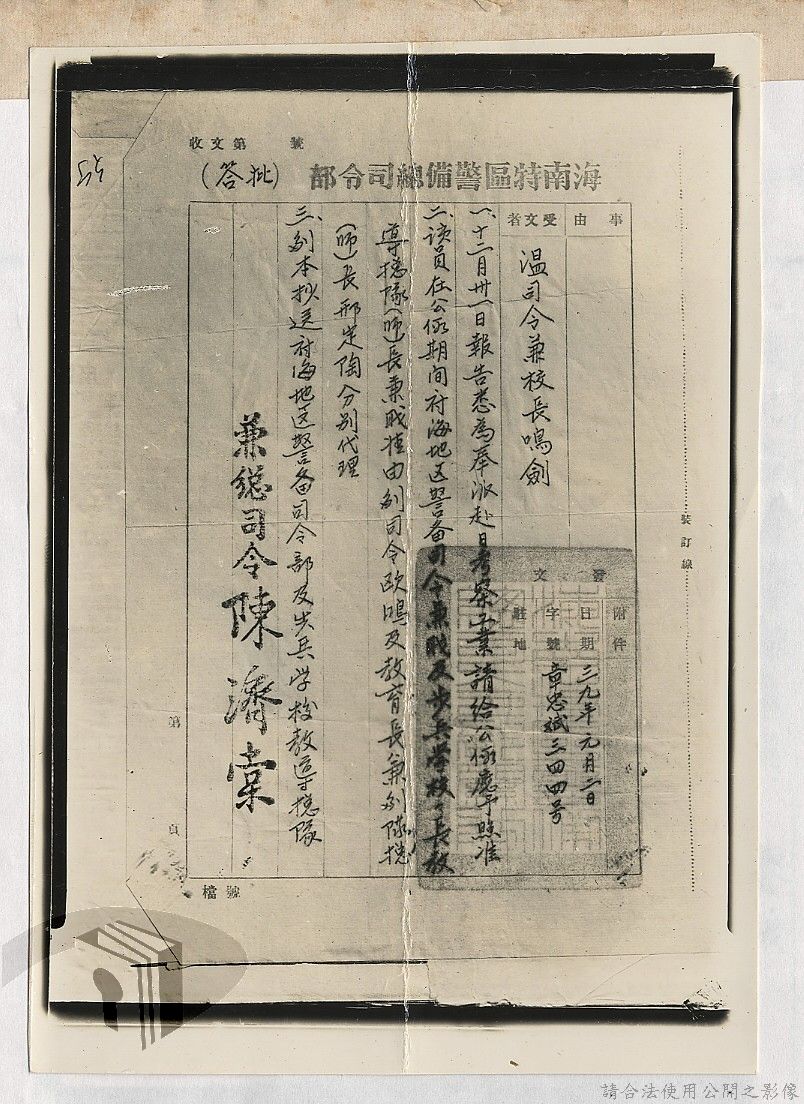 收文第 號
海南特區警備總司令部
(批答)
事由
受文者
溫司令兼校長鳴劍
發文
附件
日期
字號
駐地
三九年元月二日
章忠斌三四四号
一、十二月卅一日報告悉為奉派赴日考察工業請給公假應予照准
二、該員在公假期間府海地区警备司令兼职及步兵学校校長教
導總隊(师)長兼职准由副司令欧鳴及教育長兼副隊總
(师)長邢定陶分别代理
三、副本抄送府海地区警备司令部及步兵学校教导總隊
兼总司令陳濟棠
裝訂線
第
頁
檔號
請合法使用公開之影像